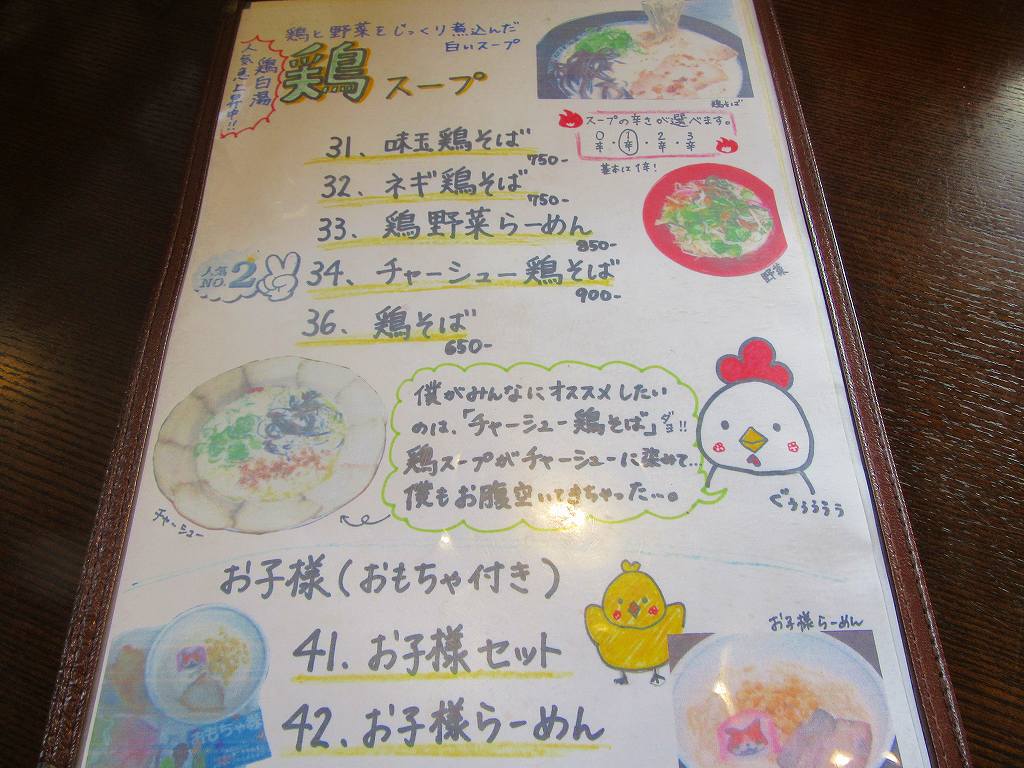 鶏と野菜をじっくり煮込んだ
白いスープ
鶏白湯
人気急上昇中!!
鶏スープ
鶏そば
スープの辛さが選べます。
0辛・1辛・2辛・3辛
基本は1辛!
31、味玉鶏そば
750-
32、ネギ鶏そば
750-
33、鶏野菜らーめん
850-
野菜
人気NO.2
34、チャーシュー鶏そば
900-
36、鶏そば
650-
僕がみんなにオススメしたい
のは、「チャーシュー鶏そば」ダヨ!!
鶏スープがチャーシューに染みて…
僕もお腹空いてきちゃった…。
ぐぅぅぅぅぅ
チャーシュー
お子様(おもちゃ付き)
41.お子様セット
お子様らーめん
42、お子様らーめん
おもちゃ